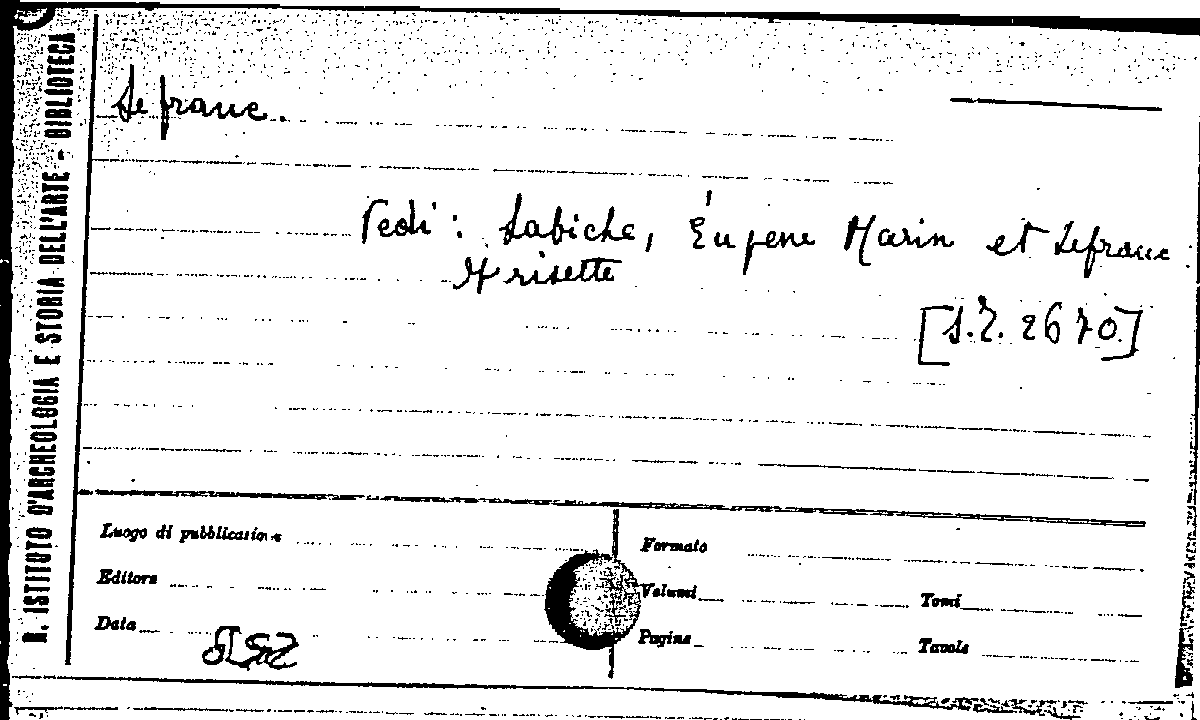 R. ISTITUTO D'ARCHEOLOGIA E STORIA DELL'ARTE - BIBLIOTECA
Lefranc.
Vedi: Labiche, Eugène Marin et Lefranc
Grisette
[S.T. 2670]
Luogo di pubblicazione
Formato
Editore
Volumi
Tomi
Data
Pagine
Tavole